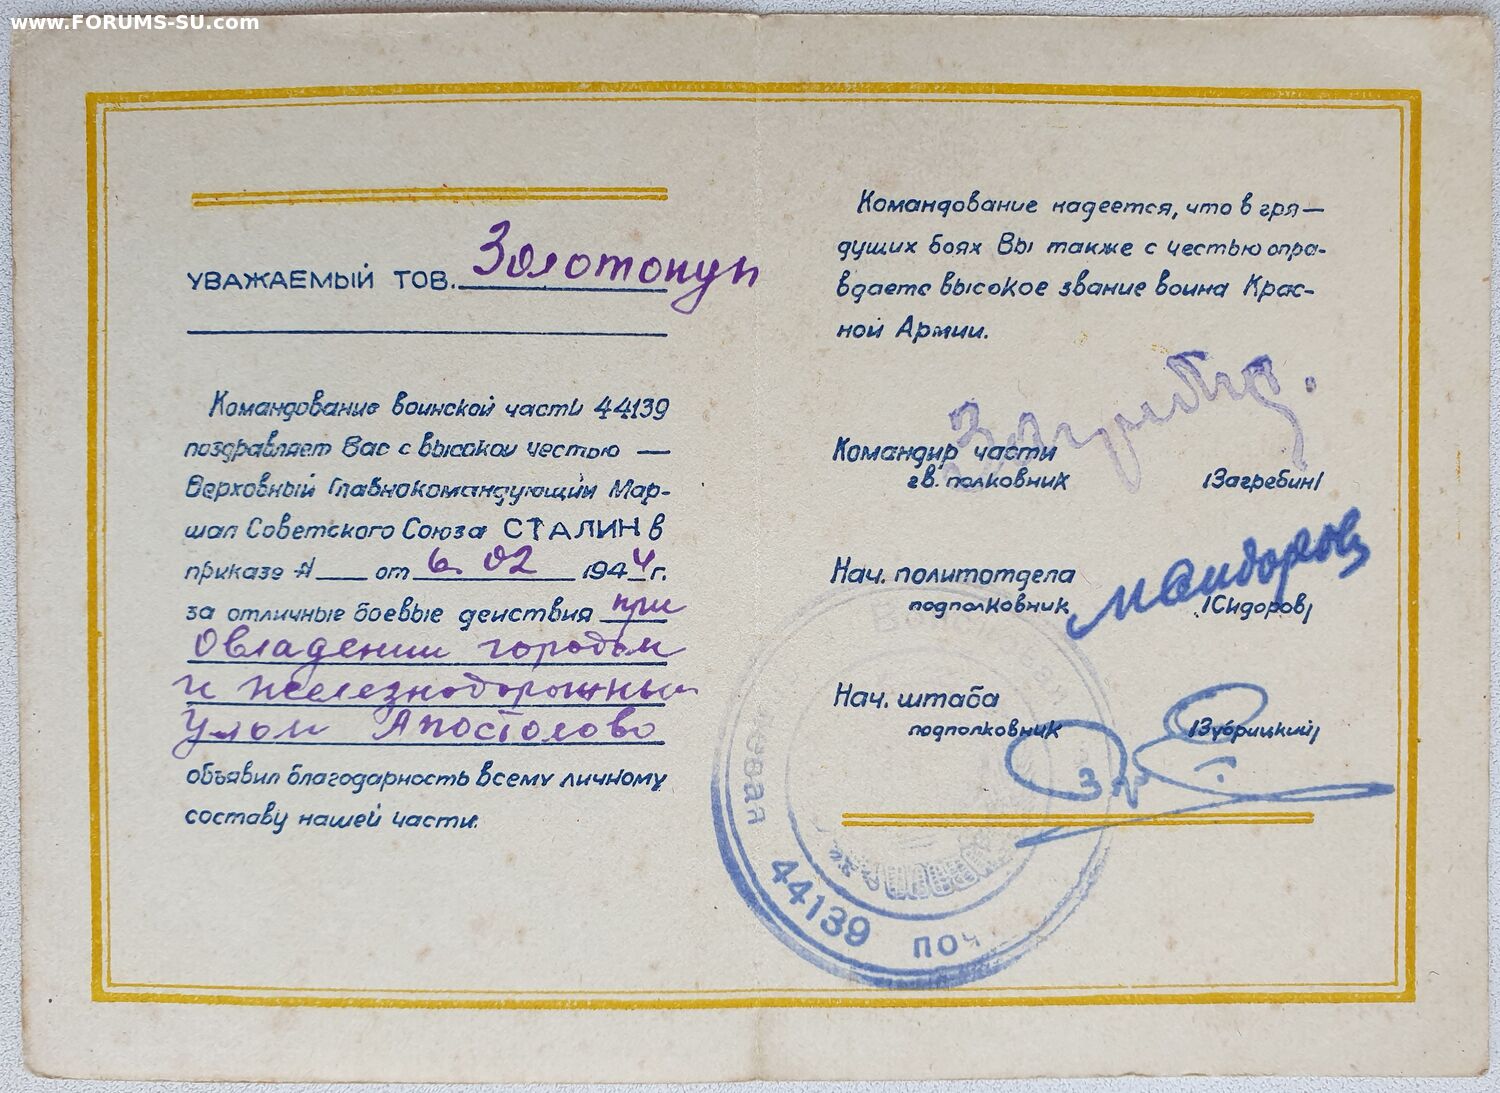 www.FORUMS-SU.com
УВАЖАЕМЫЙ ТОВ. Золотопуп
Командование воинской части 44139
поздравляет Вас с высокой честью —
Верховный Главнокомандующий Мар-
шал Советского Союза СТАЛИН в
приказе № от 6. 02 1944 г.
за отличные боевые действия при
Овладении городом
и железнодорожным
Узлом Апостолово
объявил благодарность всему личному
составу нашей части.
Командование надеется, что в гря—
дущих боях Вы также с честью опра-
вдаете высокое звание воина Крас-
ной Армии.
Командир части
гв. полковник /Загребин/
Нач. политотдела
подполковник /Сидоров/
Нач. штаба
подполковник /Зубрицкий/
44139 ПОЧ